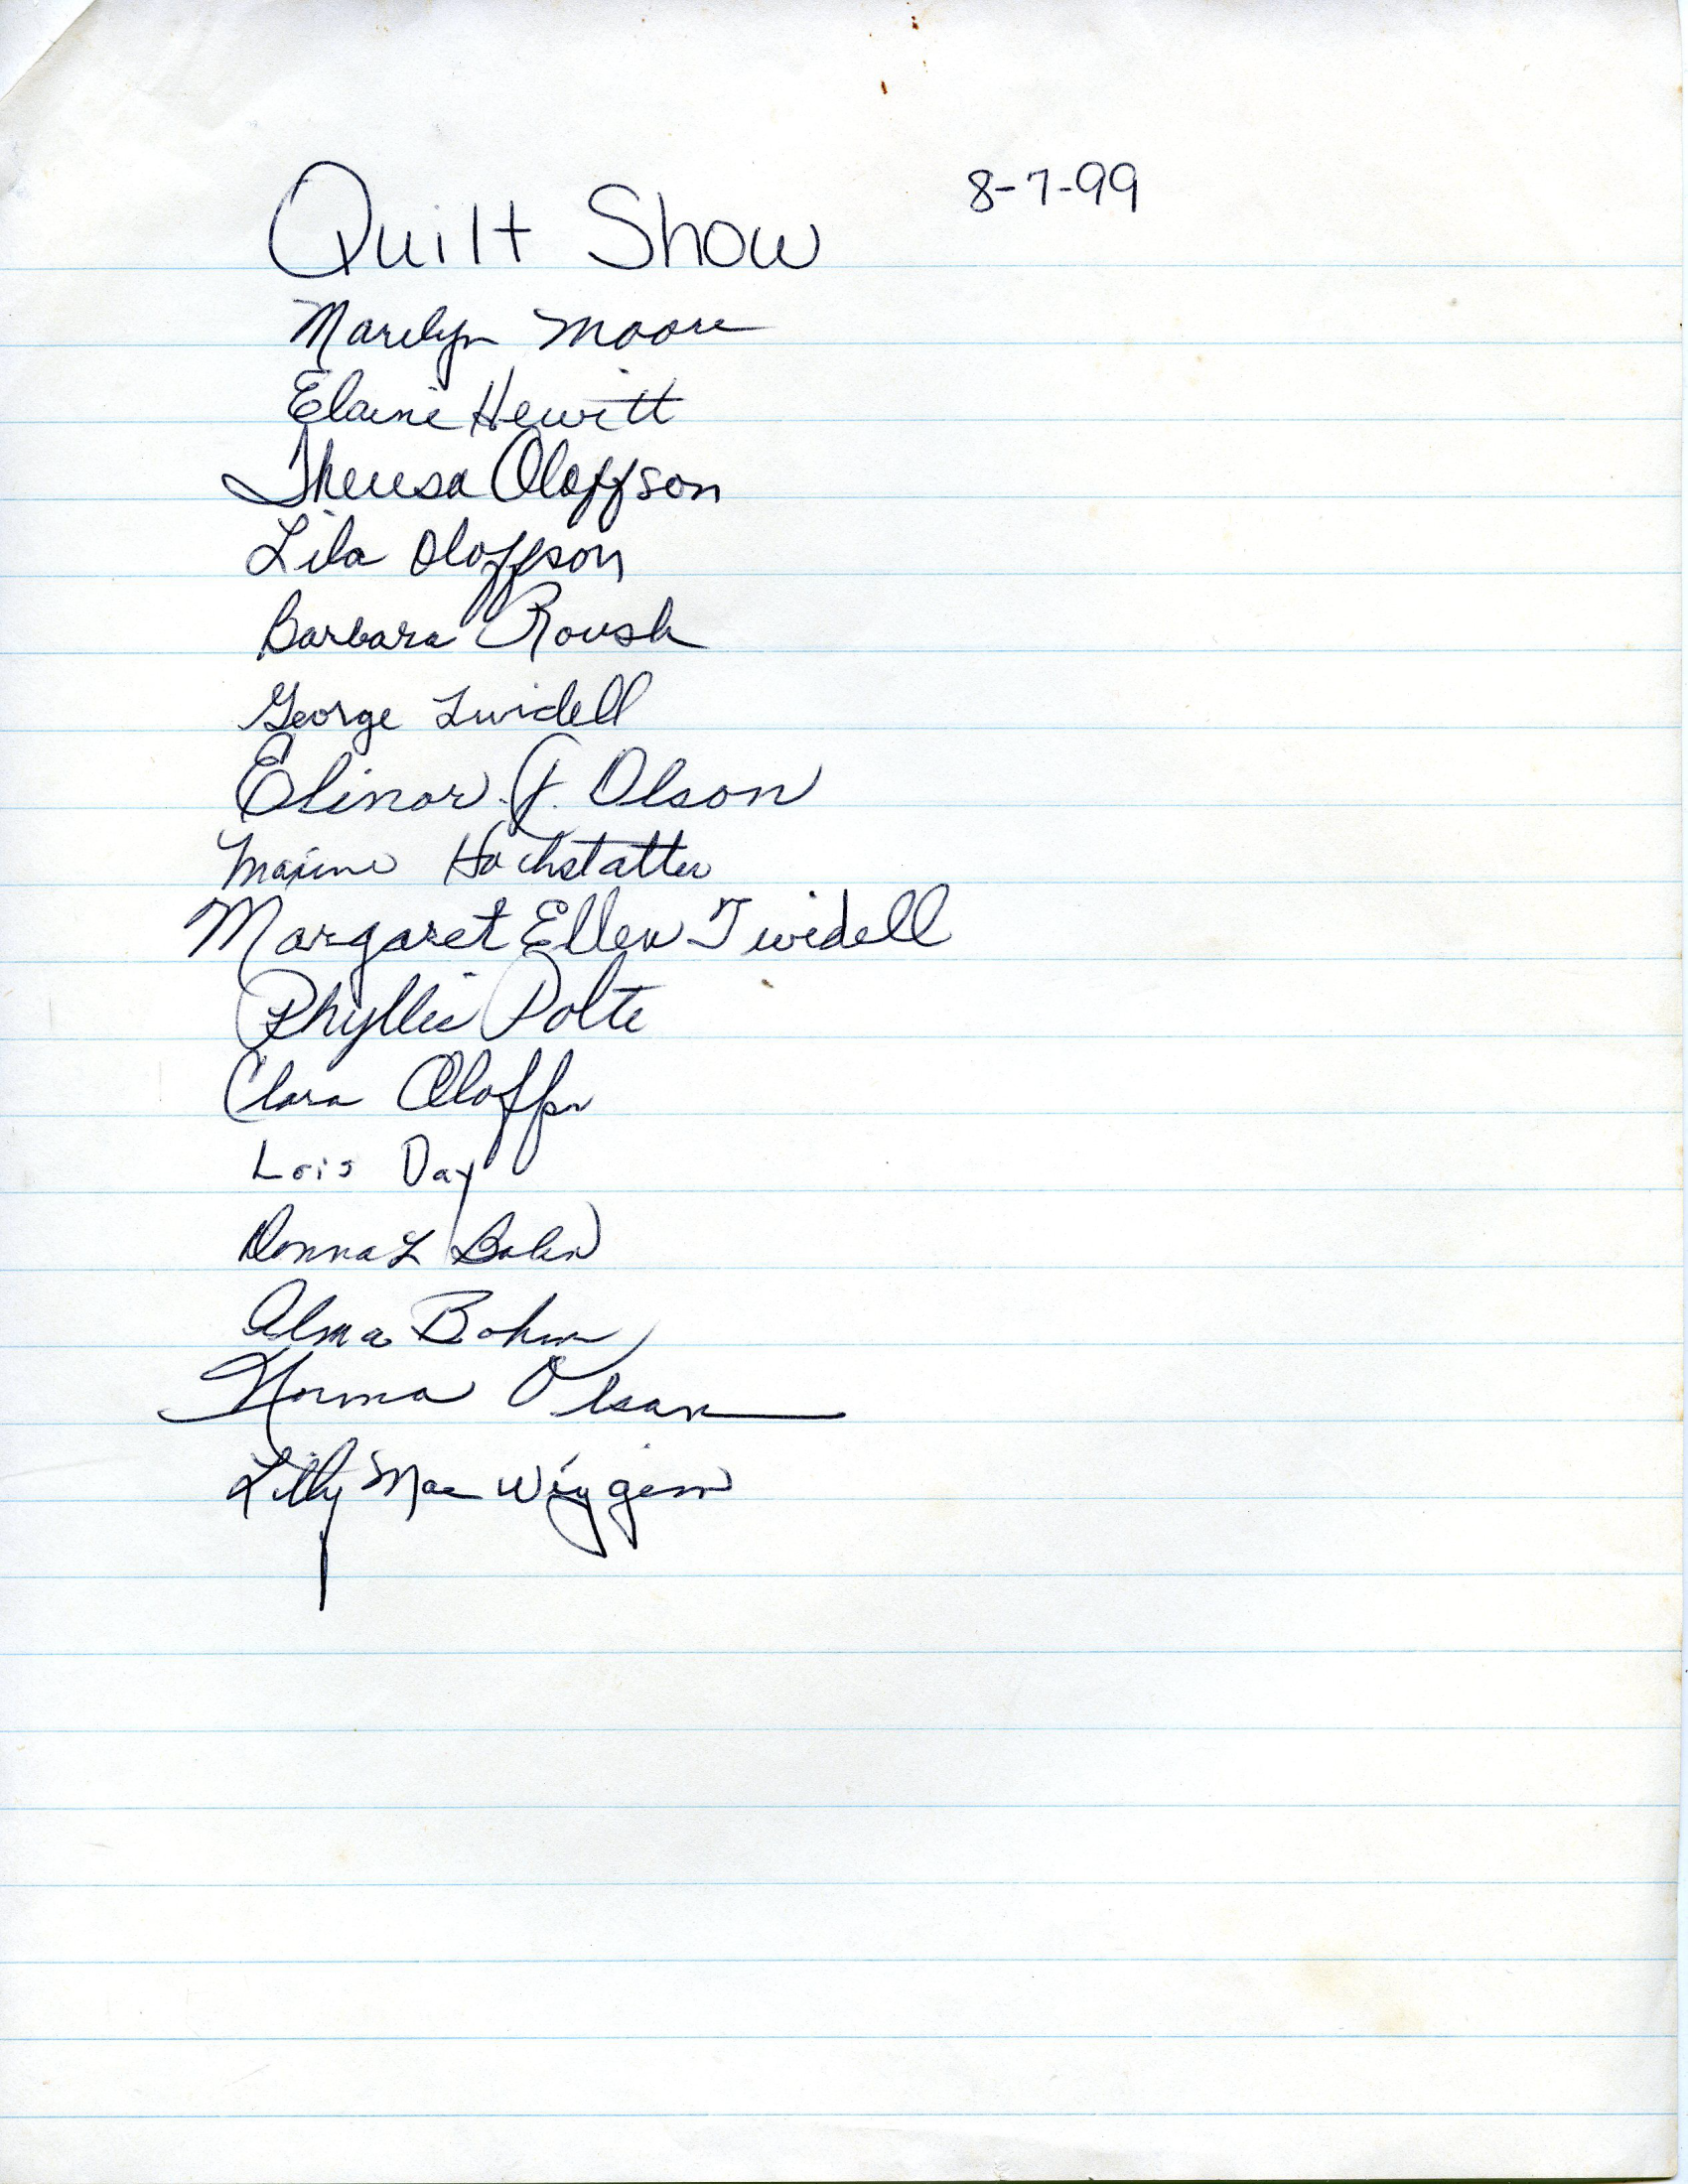 Quilt Show 8-7-99
Marilyn Moore
Elaine Hewitt
Theresa Oloffson
Lila Oloffson
Barbara Roush
George Twidell
Elinor J. Olson
Maxine Hochstatter
Margaret Ellen Twidell
Phyllis Polte
Clara Oloffson
Lois Day
Donna L Bohn
Alma Bohn
Norma Olson
Lilly Mae Wiggins